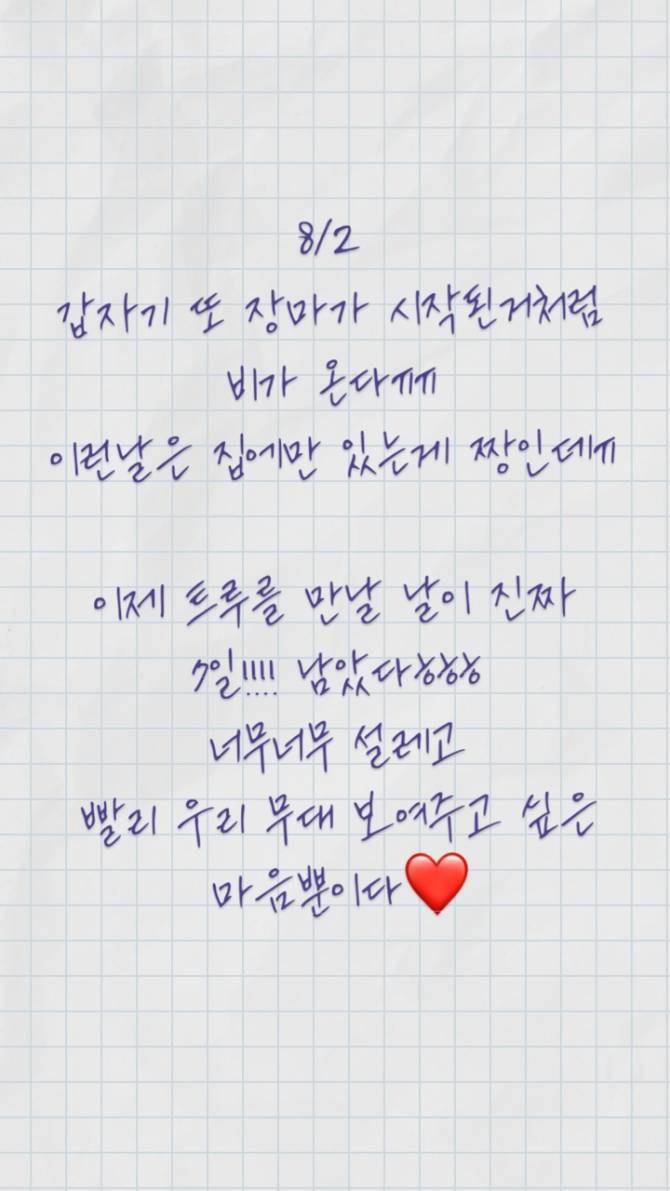 8/2
갑자기 또 장마가 시작된거처럼
비가 온다ㅠㅠ
이런날은 집에만 있는게 짱인데ㅠ
이제 트루를 만날 날이 진짜
7일!!!! 남았다ㅎㅎㅎ
너무너무 설레고
빨리 우리 무대 보여주고 싶은
마음뿐이다❤️